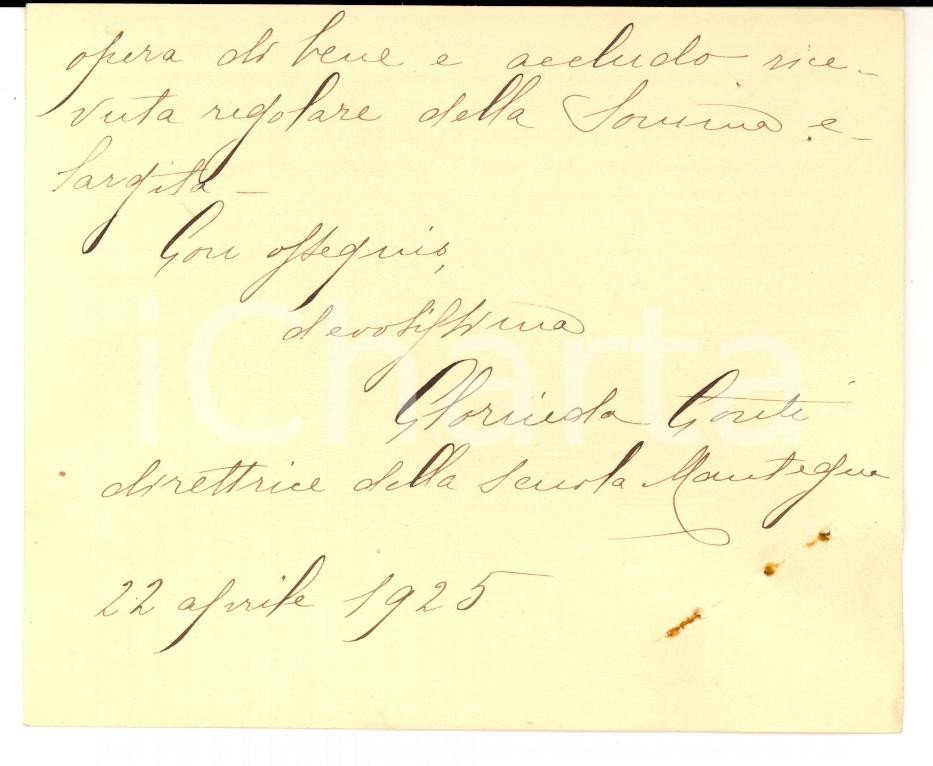 opera di bene e accludo rice-
vuta regolare della Somma e-
largita -
Con ossequio,
devotissima
Clorinda Conti
direttrice della scuola Mantegna
22 aprile 1925
iCharta